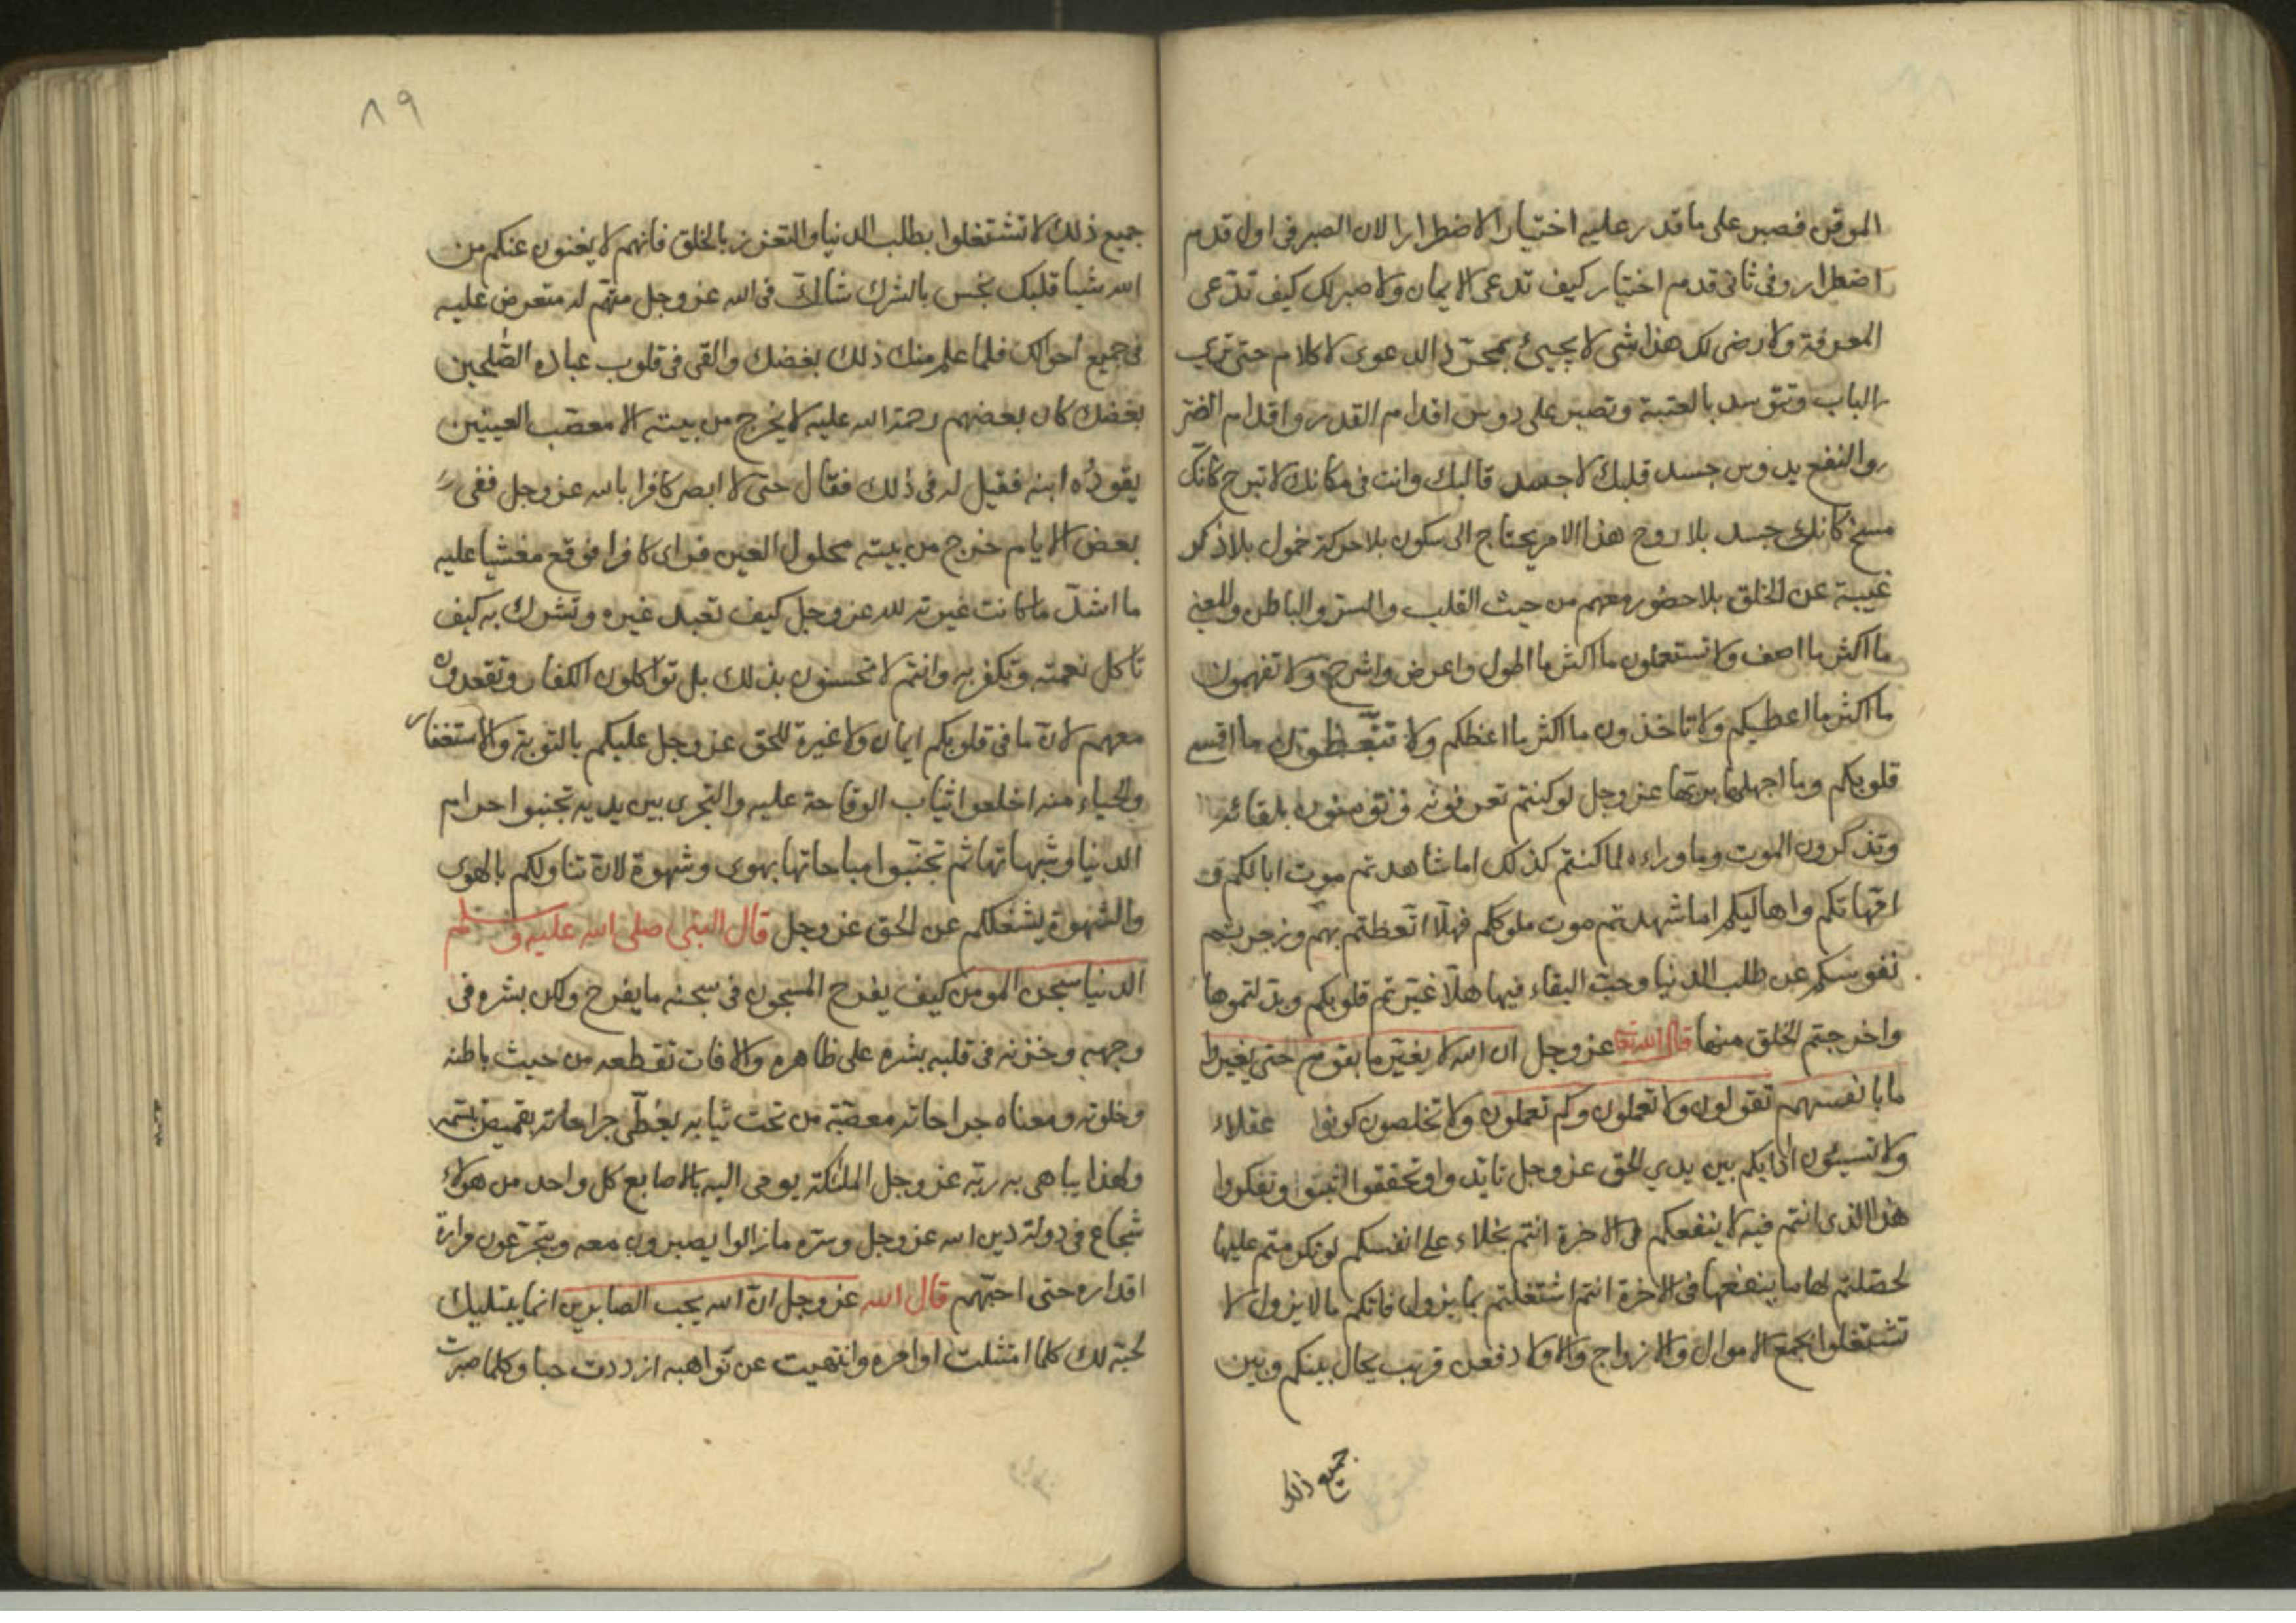 الموقن فصبر على ما قدر عليه اختيارا لا ضطرارا لان الصبر فى اول قدم
اضطرار وفى ثانى قدم اختيار كيف تدعى الايمان ولا صبر لك كيف تدّعى
المعرفة ولا رضى لك هذا شى لا يجيئ بمجرّد الدعوى لا كلام حتى ترى
الباب وتتوسد بالعتبة وتصبر على دوس اقدام القدر واقدام الضر
والنفع يدوس جسد قلبك لا جسد قالبك وانت فى مكانك لا تبرح كانّك
مسخ كانك جسد بلا روح هذا الامر يحتاج الى سكون بلا حركة خمول بلا ذكر
غيبة عن الخلق بلا حضور معهم من حيث القلب والسر والباطن والمعنى
ما اكثر ما اصف ولا تستعملون ما اكثر ما اطول واعرض واشرح ولا تفهمون
ما اكثر ما اعطيكم ولا تاخذون ما اكثر ما اعظكم ولا تتّعظون ما اقسى
قلوبكم وما اجهلها بربها عز وجل لو كنتم تعرفونه وتومنون بلقائه
وتذكرون الموت وما وراءه لما كنتم كذلك اما شاهدتم موت ابائكم و
امّهاتكم واهاليكم اما شهدتم موت ملوككم فهلّا اتّعظتم بهم وزجرتم
نفوسكم عن طلب الدنيا وحبّ البقاء فيها هلّا غيّرتم قلوبكم وبدّلتموها
واخرجتم الخلق منها قال الله تعا عز وجل ان الله لا يغيّر ما بقوم حتى يغيروا
ما بانفسهم تقولون ولا تعملون وكم تعملون ولا تخلصون كونوا عقلاء
ولا تسيئون ادابكم بين يدي الحق عز وجل تايّدوا وتحققوا اثبتوا وتفكروا
هذا الذى انتم فيه لا ينفعكم فى الاخرة انتم بخلاء على انفسكم لو تكرمتم عليها
لحصّلتم لها ما ينفعها فى الاخرة انتم اشتغلتم بما يزول فاتكم ما لا يزول لا
تشتغلوا بجمع الاموال والازواج والاولاد فعن قريب يحال بينكم وبين
جميع ذلك
٨٩
جميع ذلك لا تشتغلوا بطلب الدنيا والتعزز بالخلق فانهم لا يغنون عنكم من
الله شيا قلبك نجس بالشرك شاكّ فى الله عز وجل متهم له متعرض عليه
فى جميع احوالك فلما علم منك ذلك بغضك والقى فى قلوب عباده الصّلحين
بغضك كان بعضهم رحمة الله عليه لا يخرج من بيته الا معصّب العينين
يقودُه ابنه فقيل له فى ذلك فقال حتى لا ابصر كافرا بالله عز وجل ففى
بعض الايام خرج من بيته محلول العين فراى كافرا فوقع مغشيا عليه
ما اشدّ ما كانت غيرته لله عز وجل كيف تعبد غيره وتشرك به كيف
تاكل نعمته وتكفر به وانتم لا تحسنون بذلك بل تواكلون الكفار وتقعدون
معهم لانّ ما فى قلوبكم ايمان ولا غيرة للحق عز وجل عليكم بالتوبة والاستغفار
والحياء منه اخلعوا ثياب الوقاحة عليه والتجرى بين يديه تجنبوا حرام
الدنيا وشبهاتها ثم تجنّبوا مباحاتها بهوى وشهوة لانّ تناولكم بالهوى
والشهوة يشغلكم عن الحق عز وجل قال النبى صلى الله عليه وسلم
الدنيا سجن المومن كيف يفرح المسجون فى سجنه ما يفرح ولكن بشره فى
وجهه وحزنه فى قلبه بشره على ظاهره والافات تقطعه من حيث باطنه
وخلوته ومعناه جراحاته معصّبة من تحت ثيابه يغطّى جراحاته بقميص تبسّمه
ولهذا يباهى به ربّه عز وجل الملئكة يومى اليه بالاصابع كل واحد من هولاء
شجاع فى دولة دين الله عز وجل وسرّه ما زالوا يصبرون معه ويتجرّعون مرارة
اقداره حتى احبّهم قال الله عز وجل انّ الله يحب الصابرين انما يبتليك
لحبّه لك كلما امتثلت اوامره وانتهيت عن نواهيه ازددت حبا وكلما صبرت